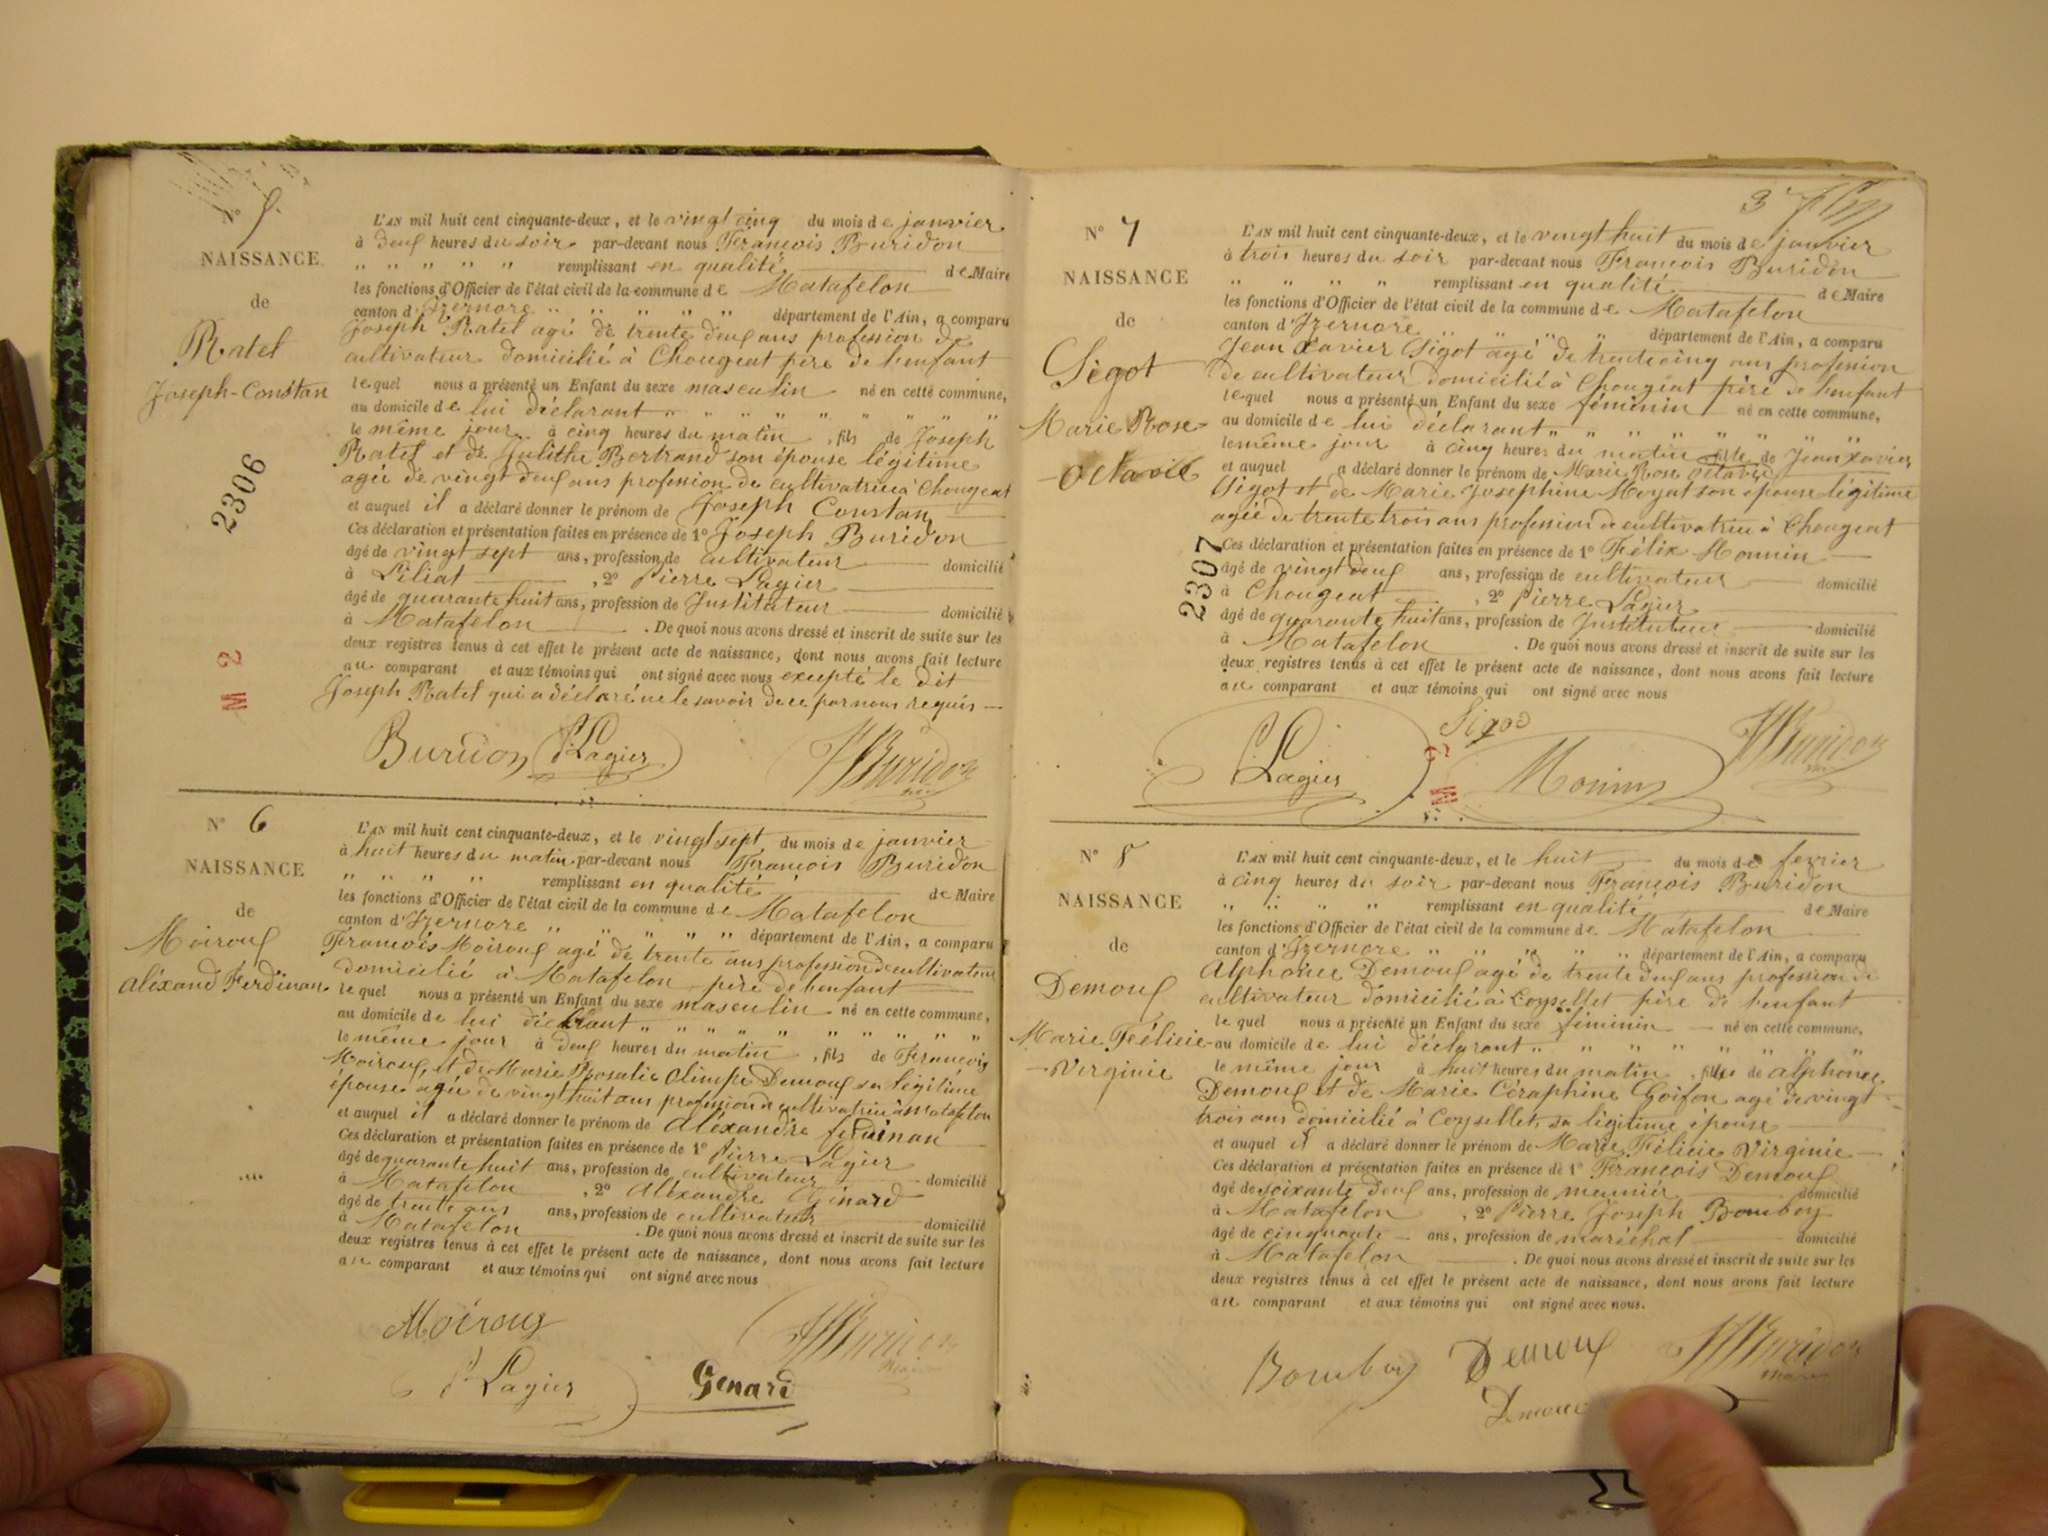 N° 5.
NAISSANCE
de
Ratel
Joseph-Constan
2306
M 2
L'AN mil huit cent cinquante-deux, et le vingt cinq du mois de janvier
à deux heures du soir par-devant nous François Buridon
" " " " " remplissant en qualité de Maire
les fonctions d'Officier de l'état civil de la commune de Matafelon
canton d'Izernore " " " " " département de l'Ain, a comparu
Joseph Ratel agé de trente deux ans profession de
cultivateur domicilié à Chougeat père de l'enfant
lequel nous a présenté un Enfant du sexe masculin né en cette commune,
au domicile de lui déclarant " " " " " " " "
le même jour à cinq heures du matin, fils de Joseph
Ratel et de Julithe Bertrand son épouse légitime
agée de vingt deux ans profession de cultivatrice à Chougeat
et auquel il a déclaré donner le prénom de Joseph Constan
Ces déclaration et présentation faites en présence de 1° Joseph Buridon
âgé de vingt sept ans, profession de cultivateur domicilié
à , 2° Pierre Lagier
âgé de quarante huit ans, profession de Instituteur domicilié
à Matafelon . De quoi nous avons dressé et inscrit de suite sur les
deux registres tenus à cet effet le présent acte de naissance, dont nous avons fait lecture
au comparant et aux témoins qui ont signé avec nous excepté le dit
Joseph Ratel qui a déclaré ne le savoir de ce par nous requis
Buridon P Lagier F Buridon
N° 6
NAISSANCE
de
Moiroux
Aléxand Ferdinan
L'AN mil huit cent cinquante-deux, et le vingt sept du mois de janvier
à huit heures du matin par-devant nous François Buridon
" " " " remplissant en qualité de Maire
les fonctions d'Officier de l'état civil de la commune de Matafelon
canton d'Izernore " " " " " département de l'Ain, a comparu
François Moiroux agé de trente ans profession de cultivateur
domicilié à Matafelon père de l'enfant
lequel nous a présenté un Enfant du sexe masculin né en cette commune,
au domicile de lui déclarant " " " " " " " " "
le même jour à deux heures du matin, fils de François
Moiroux, et de Marie Rosalie Olimpe Demoux sa légitime
épouse agée de vingt huit ans profession de cultivatrice à Matafelon
et auquel il a déclaré donner le prénom de Aléxandre ferdinan
Ces déclaration et présentation faites en présence de 1° Pierre Lagier
âgé de quarante huit ans, profession de cultivateur domicilié
à Matafelon , 2° Aléxandre Génard
âgé de trente ans ans, profession de cultivateur domicilié
à Matafelon . De quoi nous avons dressé et inscrit de suite sur les
deux registres tenus à cet effet le présent acte de naissance, dont nous avons fait lecture
au comparant et aux témoins qui ont signé avec nous
Moiroux F Buridon
P Lagier Genard
3
N° 7
NAISSANCE
de
Sigot
Marie Rose
Octavie
2307
L'AN mil huit cent cinquante-deux, et le vingt huit du mois de janvier
à trois heures du soir par-devant nous François Buridon
" " " " remplissant en qualité de Maire
les fonctions d'Officier de l'état civil de la commune de Matafelon
canton d'Izernore " " " " département de l'Ain, a comparu
Jean Xavier Sigot agé de trente cinq ans profession
de cultivateur domicilié à Chougeat père de l'enfant
lequel nous a présenté un Enfant du sexe féminin né en cette commune,
au domicile de lui déclarant " " " " " " "
le même jour à cinq heures du matin fille de Jean Xavier
et auquel a déclaré donner le prénom de Marie Rose Octavie
Sigot et de Marie Josephine Moyat son épouse légitime
agée de trente trois ans profession de cultivatrice à Chougeat
Ces déclaration et présentation faites en présence de 1° Félix Monnin
âgé de vingt deux ans, profession de cultivateur domicilié
à Chougeat , 2° Pierre Lagier
âgé de quarante huit ans, profession de Instituteur domicilié
à Matafelon . De quoi nous avons dressé et inscrit de suite sur les
deux registres tenus à cet effet le présent acte de naissance, dont nous avons fait lecture
au comparant et aux témoins qui ont signé avec nous
P Lagier Sigod Monin F Buridon
M 2
N° 8
NAISSANCE
de
Demoux
Marie Félicie
Virginie
L'AN mil huit cent cinquante-deux, et le huit du mois de fevrier
à cinq heures du soir par-devant nous François Buridon
" " " " remplissant en qualité de Maire
les fonctions d'Officier de l'état civil de la commune de Matafelon
canton d'Izernore " " " " département de l'Ain, a comparu
Alphonse Demoux agé de trente deux ans profession de
cultivateur domicilié à Coysellet père de l'enfant
lequel nous a présenté un Enfant du sexe féminin né en cette commune,
au domicile de lui déclarant " " " " " " " "
le même jour à huit heures du matin, fille de alphonse
Demoux et de Marie Céraphine Goifon agé de vingt
trois ans domicilié à Coysellet, sa légitime épouse
et auquel il a déclaré donner le prénom de Marie Félicie Virginie
Ces déclaration et présentation faites en présence de 1° François Demoux
âgé de soixante deux ans, profession de meunier domicilié
à Matafelon , 2° Pierre Joseph Bomboy
âgé de cinquante ans, profession de maréchal domicilié
à Matafelon . De quoi nous avons dressé et inscrit de suite sur les
deux registres tenus à cet effet le présent acte de naissance, dont nous avons fait lecture
au comparant et aux témoins qui ont signé avec nous.
Bomboy Demoux F Buridon
Demoux maire